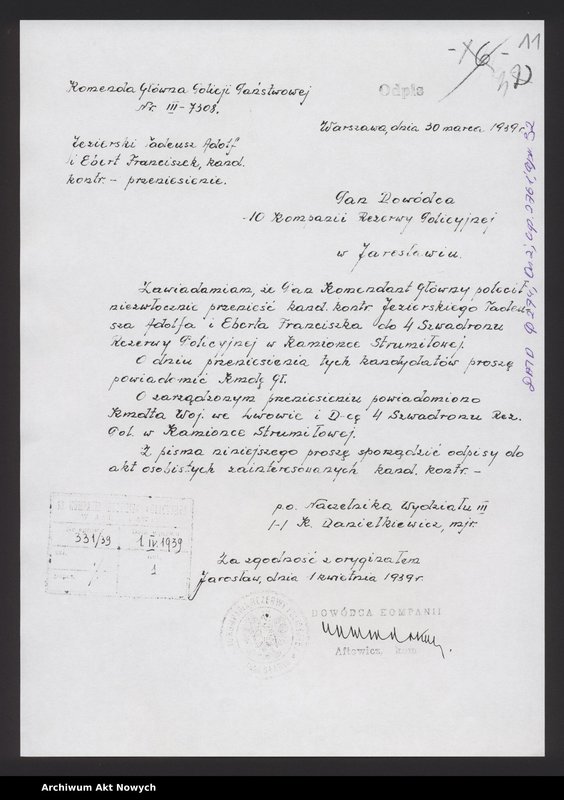 11
Komenda Główna Policji Państwowej
Nr. III-7308.
Odpis
Warszawa, dnia 30 marca 1939 r.
Jezierski Tadeusz Adolf
i Ebert Franciszek, kand.
kontr. - przeniesienie.
Pan Dowódca
10 Kompanii Rezerwy Policyjnej
w Jarosławiu.
Zawiadamiam, że Pan Komendant Główny polecił
niezwłocznie przenieść kand. kontr. Jezierskiego Tadeu-
sza Adolfa i Eberta Franciszka do 4 Szwadronu
Rezerwy Policyjnej w Kamionce Strumiłowej.
O dniu przeniesienia tych kandydatów proszę
powiadomić Kmdę Gł.
O zarządzonym przeniesieniu powiadomiono
Kmdta Woj. we Lwowie i D-cę 4 Szwadronu Rez.
Pol. w Kamionce Strumiłowej.
Z pisma niniejszego proszę sporządzić odpisy do
akt osobistych zainteresowanych kand. kontr. -
p.o. Naczelnika Wydziału III
/-/ K. Danielkiewicz, mjr.
331/39
1 IV 1939
1
Za zgodność z oryginałem
Jarosław, dnia 1 kwietnia 1939 r.
DOWÓDCA KOMPANII
Aftowicz, kom
Archiwum Akt Nowych